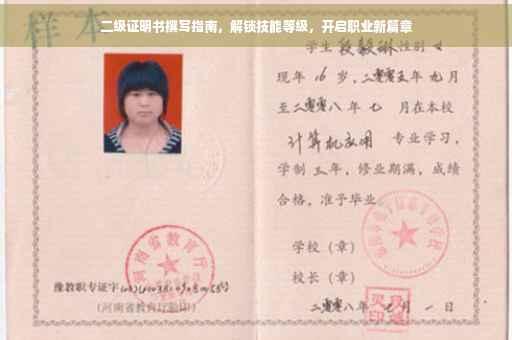 二级证明书撰写指南，解锁技能等级，开启职业新篇章
样本
学生 段毅琳 性别 女
现年 16 岁，二零零五年 九月
至二零零八年 七 月在本校
计算机应用 专业学习，
学制 三年，修业期满，成绩
合格，准予毕业
学校（章）
校长（章）
二零零八年 七月 一日
河南省教育厅
豫教职专证字
（河南省教育厅验印）